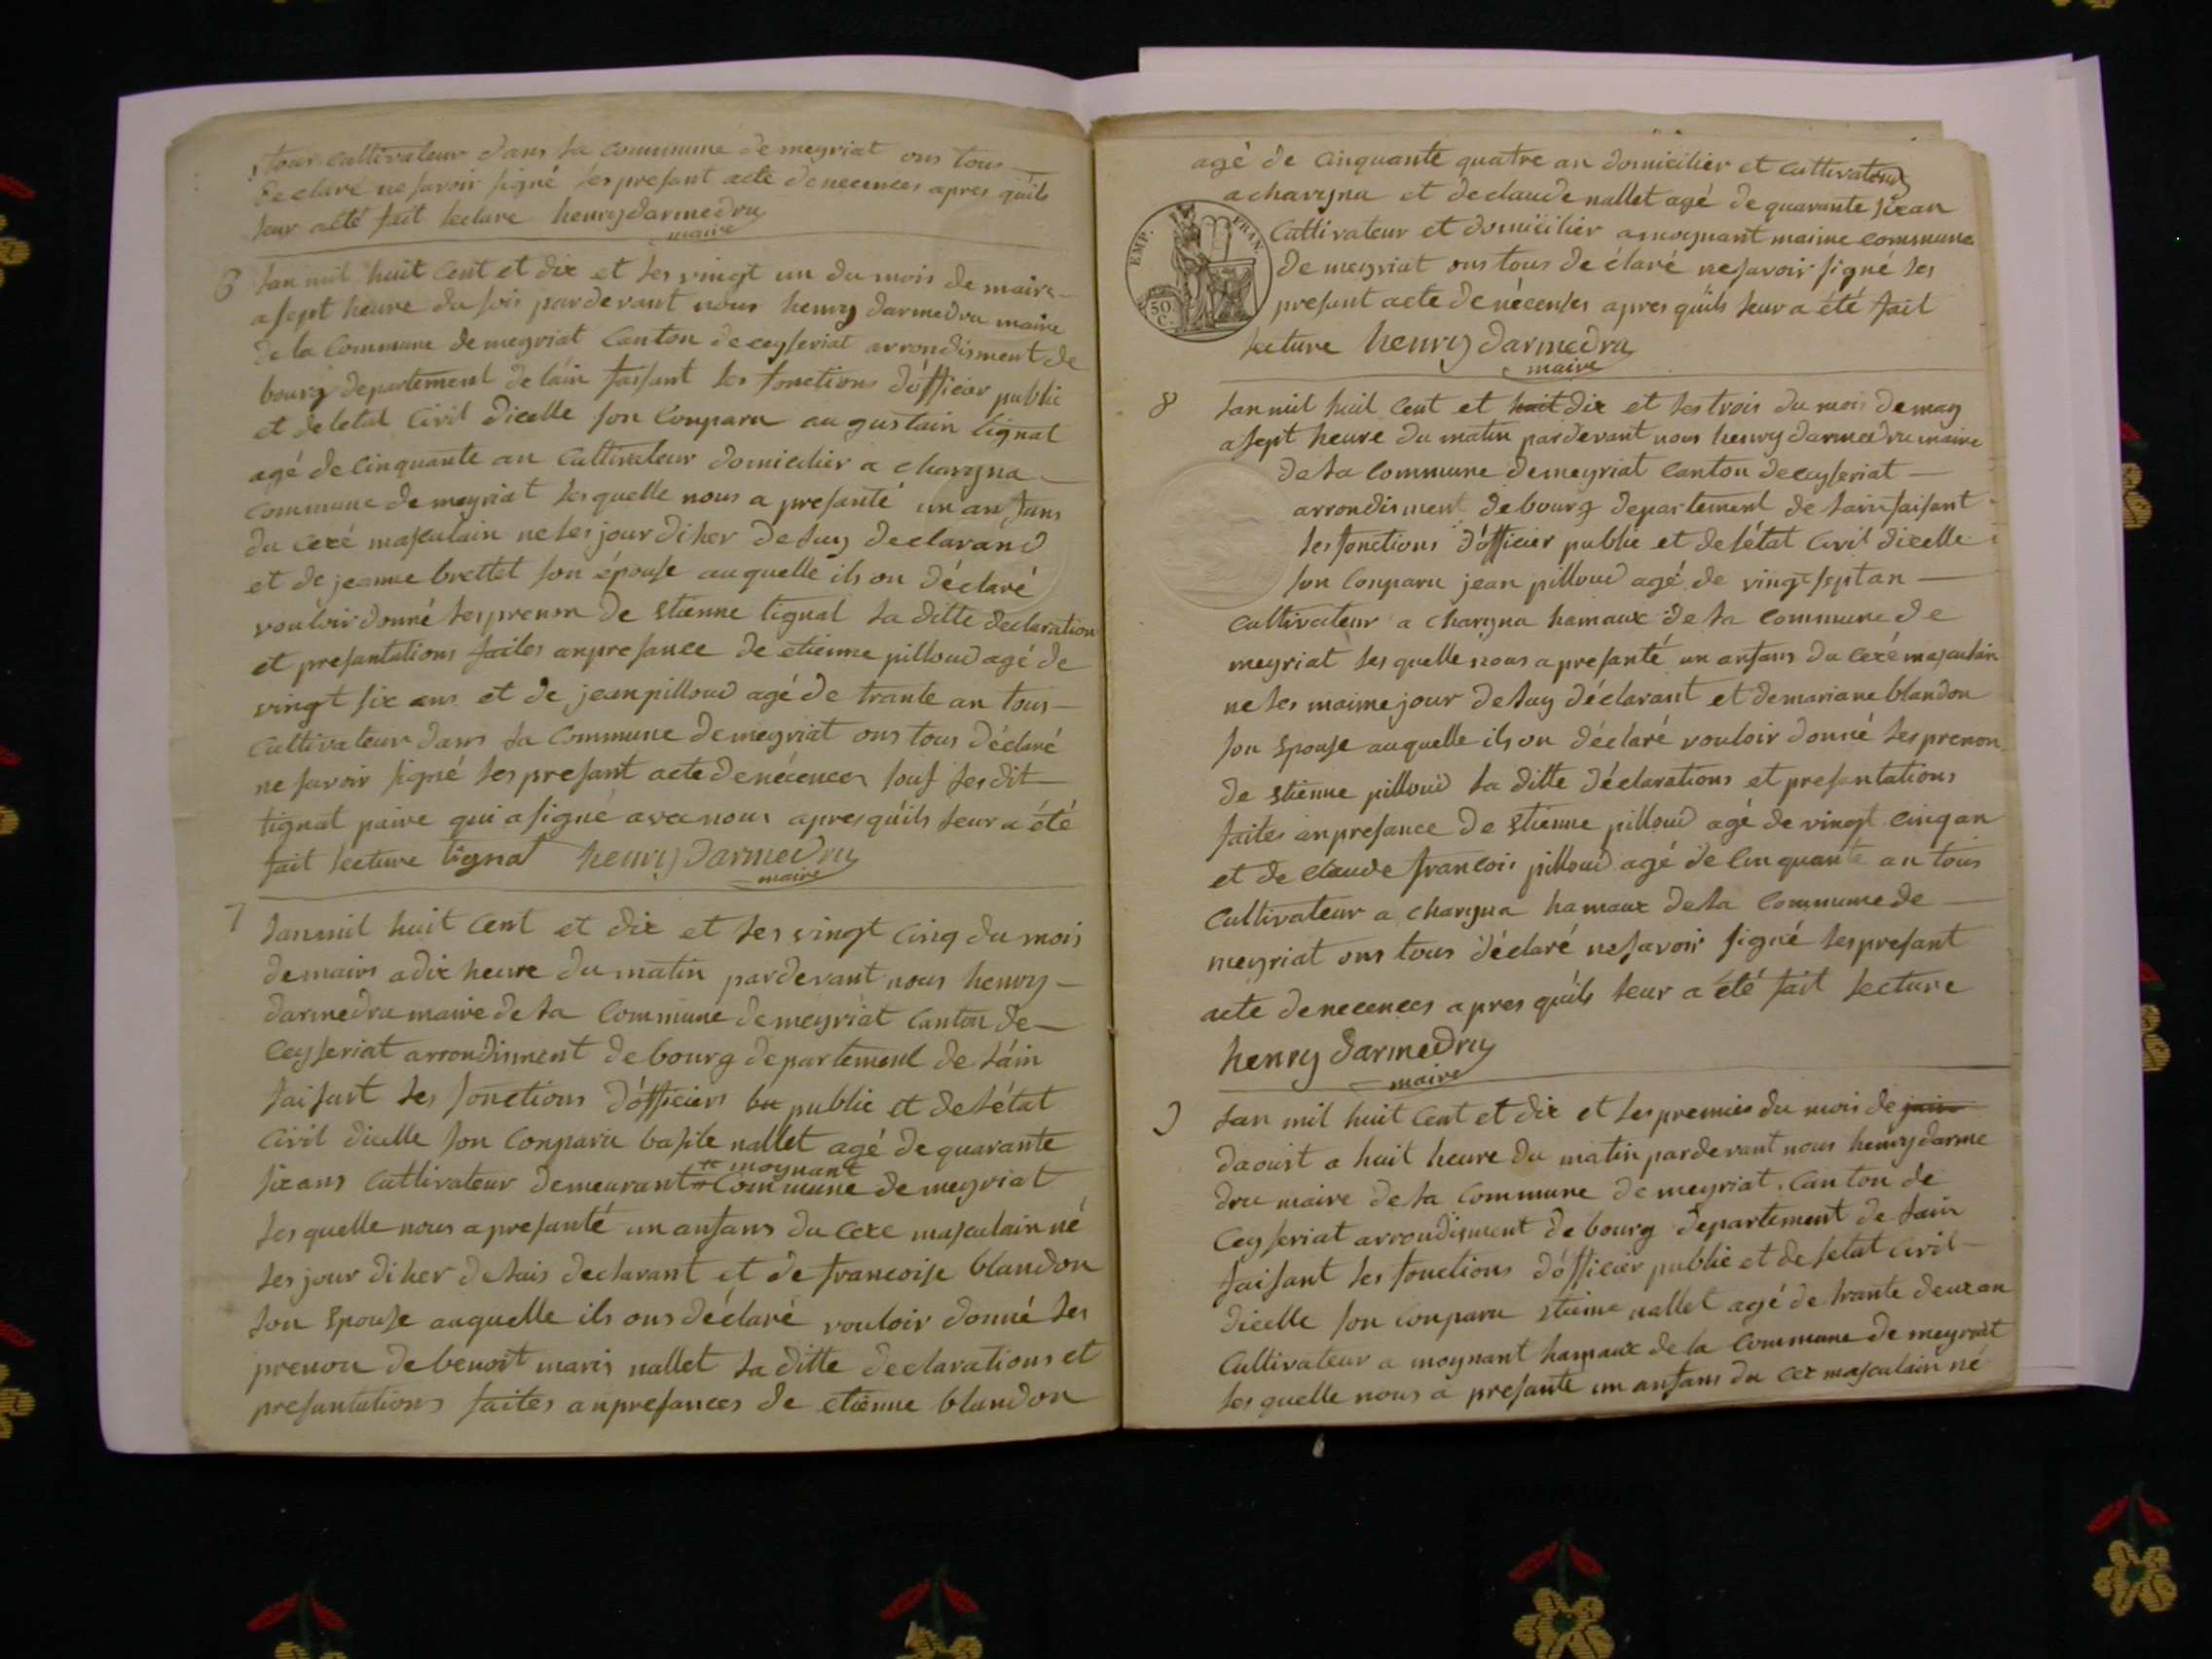 tous cultivateur dans la commune de meyriat ons tous
declaré ne savoir signé les presant acte de necences apres quils
leur a été fait lecture henry darmedru
maire
6 lan mil huit cent et dix et les vingt un du mois de mairs
a sept heure du soir pardevant nous henry darmedru maire
de la commune de meyriat canton de ceyseriat arrondisment de
bourg departement de láin faisant les fonctions dófficier public
et de letat civil dicelle son conparu augustain tignat
agé de cinquante an cultivateur domicilier a charyna
commune de meyriat lesquelle nous a presanté un anfans
du cexé masculain ne les jour diher de luy declarand
et de jeanne brettet son épouse auquelle ils on déclaré
vouloir donné les prenon de etienne tignat la ditte declaration
et presantations faites anpresance de etienne pilloud agé de
vingt six ans et de jean pilloud agé de trante an tous
cultivateur dans la commune de meyriat ons tous déclaré
ne savoir signé les presant acte de nécences souf les dit
tignat paire qui a signé avec nous apres quíls leur a été
fait lecture tignat henry darmedru
maire
7 lan mil huit cent et dix et les vingt cinq du mois
de mairs a dix heure du matin pardevant nous henry
darmedru maire de la commune de meyriat canton de
ceyseriat arrondisment de bourg departement de láin
faisant les fonctions dófficiers bu public et de létat
civil dicelle son conparu basile nallet agé de quarante
six ans cultivateur demeurant a moynant commune de meyriat
lesquelle nous a presanté un anfans du cexe masculain né
les jour diher de luis declarant et de francoise blandon
son epouse auquelle ils ons déclaré vouloir donné les
prenon de benoit maris nallet la ditte declarations et
presantations faites anpresances de etienne blandon
agé de cinquante quatre an domicilier et cultivateur
a charyna et de claude nallet agé de quarante six an
EMP. FRAN
50
C.
cultivateur et domicilier a moynant maime commune
de meyriat ons tous déclaré ne savoir signé les
presant acte de nécenses apres quils leur a été fait
lecture henry darmedru
maire
8 lan mil huit cent et huit dix et les trois du mois de may
a sept heure du matin pardevant nous henry darmedru maire
de la commune de meyriat canton de ceyseriat
arrondisment de bourg departement de lain faisant
les fonctions dófficier public et de létat civil dicelle
son conparu jean pilloud agé de vingt sept an
cultivateur a charyna hamaux de la commune de
meyriat lesquelle nous a presanté un anfans du cexé masculain
ne les maime jour de luy déclarant et de mariane blandon
son epouse auquelle ils on déclaré vouloir donné les prenon
de etienne pilloud la ditte déclarations et presantations
faites anpresance de etienne pilloud agé de vingt cinq an
et de claude francois pilloud agé de cinquante an tous
cultivateur a charyna hamaux de la commune de
meyriat ons tous déclaré ne savoir signé les presant
acte de necences apres quils leur a été fait lecture
henry darmedru
maire
9 lan mil huit cent et dix et les premier du mois de juin
daoust a huit heure du matin pardevant nous henry darme
dru maire de la commune de meyriat canton de
ceyseriat arrondisment de bourg departement de lain
faisant les fonctions dófficier public et de letat civil
dicelle son conparu etienne nallet agé de trante deux an
cultivateur a moynant hamaux de la commune de meyriat
lesquelle nous a presanté un anfans du cex masculain né